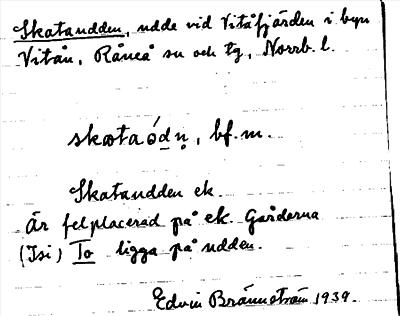 Skatandden, udde vid Vitåfjärden i byn
Vitån, Råneå sn och tg, Norrb. l.
skataódṇ, bf. m.
Skatandden ek.
är felplacerad på ek. Gårderna
(Isi) To ligga på udden.
Edvin Brännström 1939.